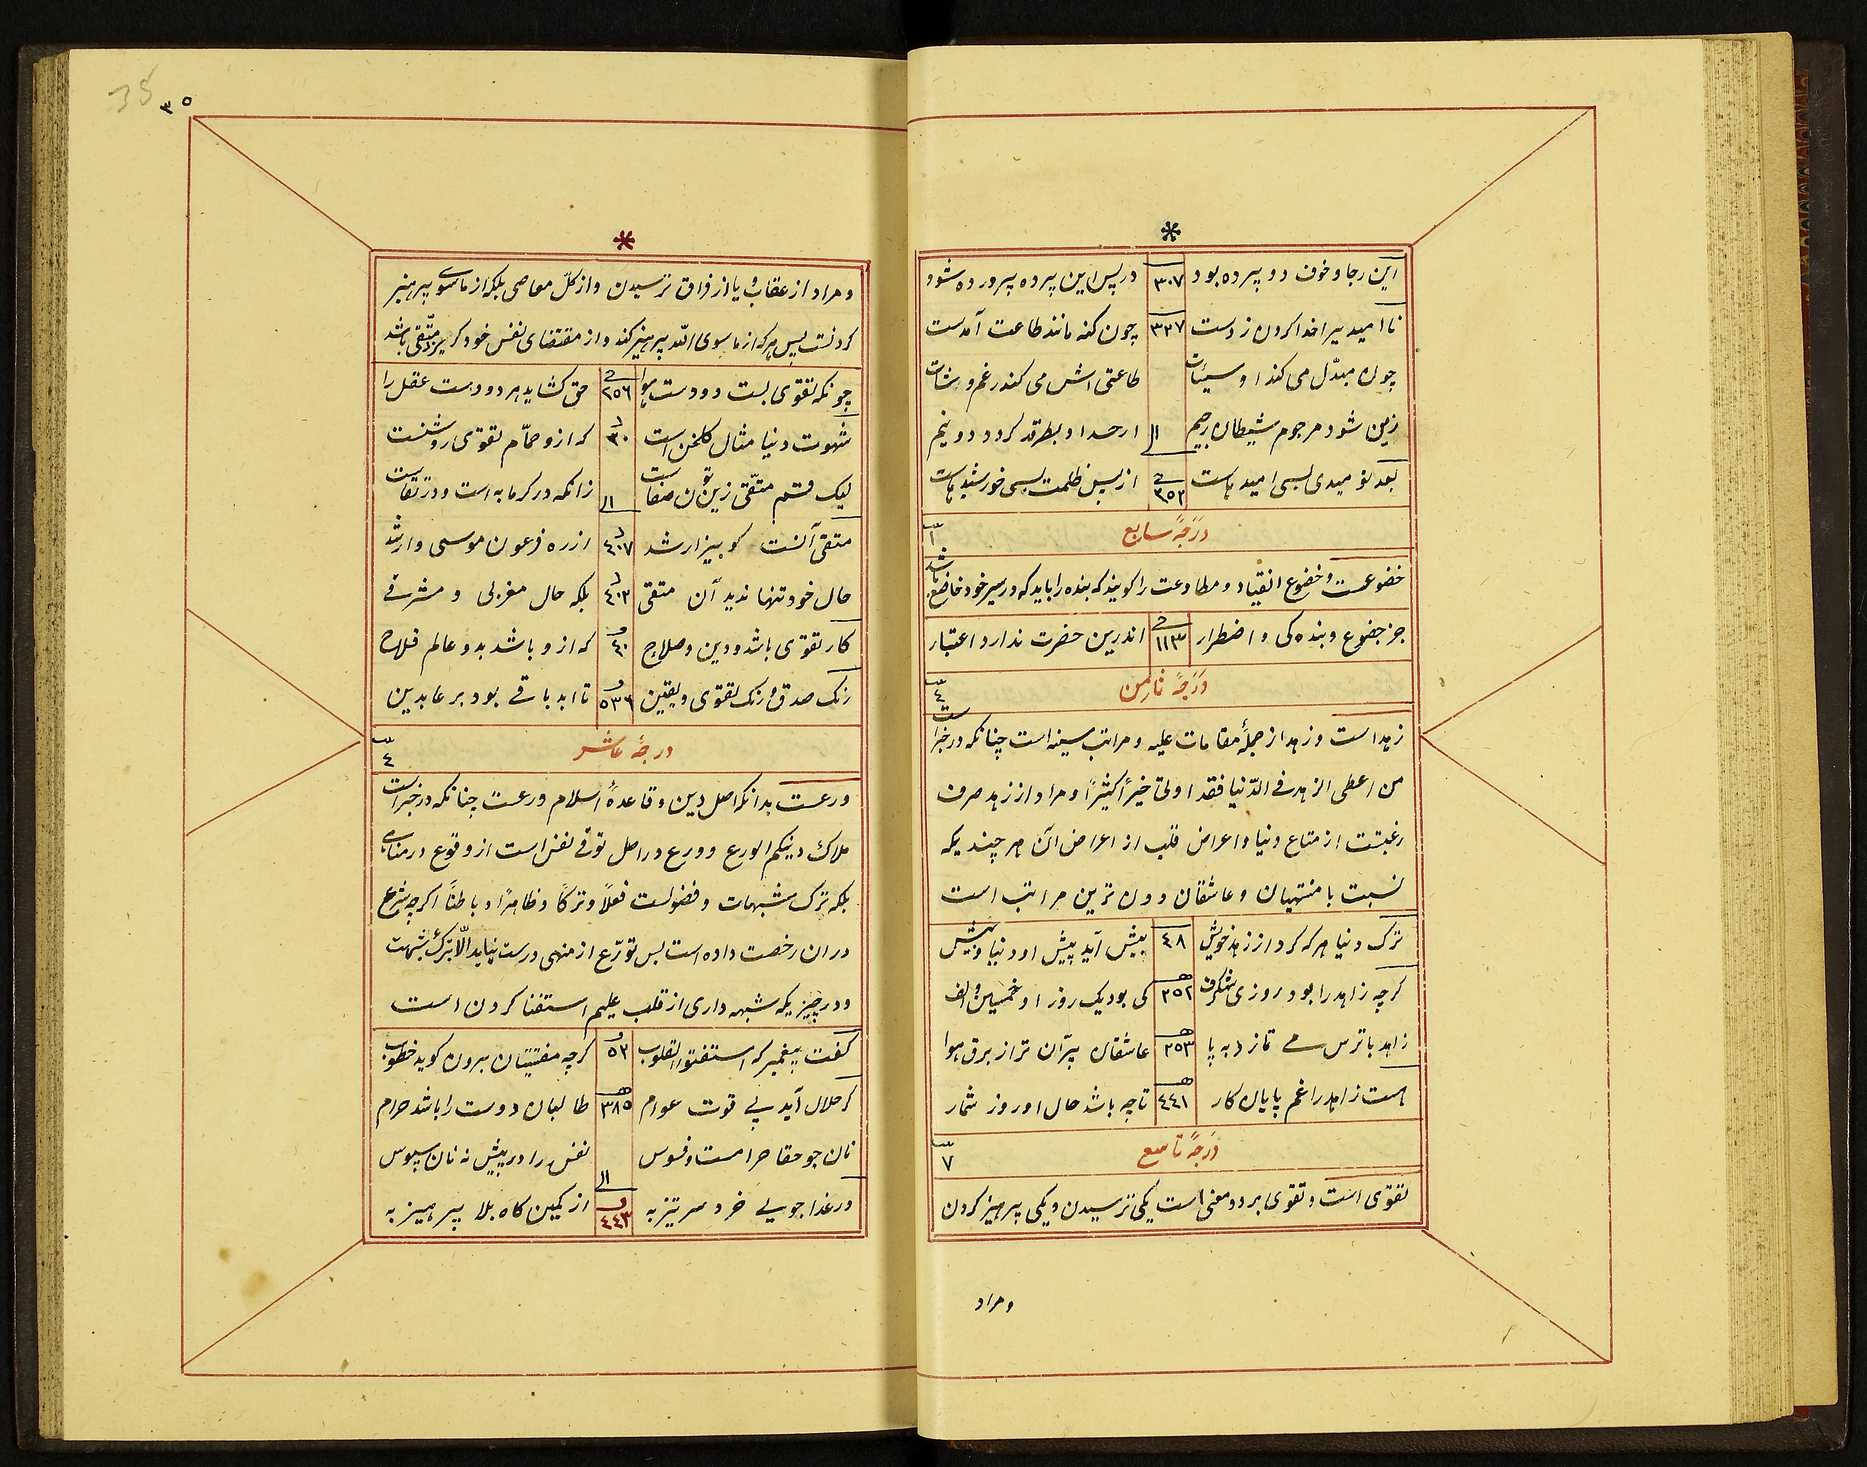 این رجا و خوف دو پرده بود ۳۰۷ در پس این پرده پرورده شود
ناامید برا خدا کردن زدست ۳۳۷ چون کنه مانند طاعت آمدست
چون مبدّل می کند او سیئات طاعتی اش می کند رغم وشات
زین شود مرجوم شیطان رجیم از حسد او بطرقد کردد دو نیم
بعد نومیدی بسی امیدهاست ۳۵۲ از پس ظلمت بسی خورشیدهاست
درجهٔ سابع
خضوعست و خضوع انقیاد و مطاوعت را کویند که بنده را باید که در سیر خود خاضع باشد
جز خضوع و بنده کی و اضطرار ۱۱۳ اندرین حضرت ندارد اعتبار
درجهٔ ثامن ٤
زهد است و زهد از جملهٔ مقامات علیه و مراتب سینه است چنانکه در خبر است
من اعطی الزهد فی الدّنیا فقد اوتی خیراً کثیراً و مراد از زهد صرف
رغبتست از متاع دنیا و اعراض قلب از اعراض آن هر چندیکه
نسبت با منتهیان و عاشقان دون ترین مراتب است
ترک دنیا هرکه کرد از زهد خویش ٤٨ بیش آید پیش او دنیا و بیش
کرچه زاهد را بود روزی شکرف ۲۵۲ کی بود یک روز او خمسین و الف
زاهد با ترس می تازد به پا ۲۵۳ عاشقان پرّان تر از برق هوا
هست زاهد را غم پایان کار ٤٤١ تا چه باشد حال او روز شمار
درجهٔ تاسع ۷
تقوی است و تقوی بر دو معنی است یکی ترسیدن و یکی پرهیز کردن
و مراد
۳۵
35
و مراد از عقاب و یا از فراق ترسیدن و از کلّ معاصی بلکه از ماسوی پرهیز
کردنست پس هرکه از ماسوی اللّه پرهیز کند و از مقتضای نفس خود کریزد متّقی باشد
چونکه تقوی بست دو دست هوا ۲۵٦ حق کشاید هر دو دست عقل را
شهوت دنیا مثال کلخن است ۳۰ که ازو حمّام تقوی روشنست
لیک قسم متّقی زین تون صفاست زانکه در کرمابه است و در نقاست
متقی آنست کو بیزار شد ٤٠٧ از ره فرعون موسی وار شد
حال خود تنها ندید آن متقی ٤٠٣ بلکه حال مغربی و مشرقی
کار تقوی باشد و دین و صلاح ٤٠ که ازو باشد بدو عالم فلاح
رنک صدق و رنک تقوی و یقین ۵۳٦ تا ابد باقی بود بر عابدین
درجهٔ عاشر ٤
ورعست بدانکه اصل دین و قاعدهٔ اسلام ورعست چنانکه در خبر است
ملاک دینکم الورع و ورع در اصل توقی نفس است از وقوع در مناهی
بلکه ترک مشبهات و فضولست فعلاً و ترکاً و ظاهراً و باطناً اکرچه شرع
در ان رخصت داده است پس تورّع از منهی درست نیاید الّا بترک شبهت
و در چیزیکه شبهه داری از قلب علیم استفتا کردن است
کفت پیغمبر که استفتوا القلوب ۵۳ کرچه مفتیتان برون کوید خطوب
کر حلال آید پی قوت عوام ۳۸۵ طالبان دوست را باشد حرام
نان جو حقا حرامست و فسوس نفس را در پیش نه نان سبوس
ور غذا جویی خرد سر تیز به ٤٤٣ از کمین کاه بلا پرهیز به